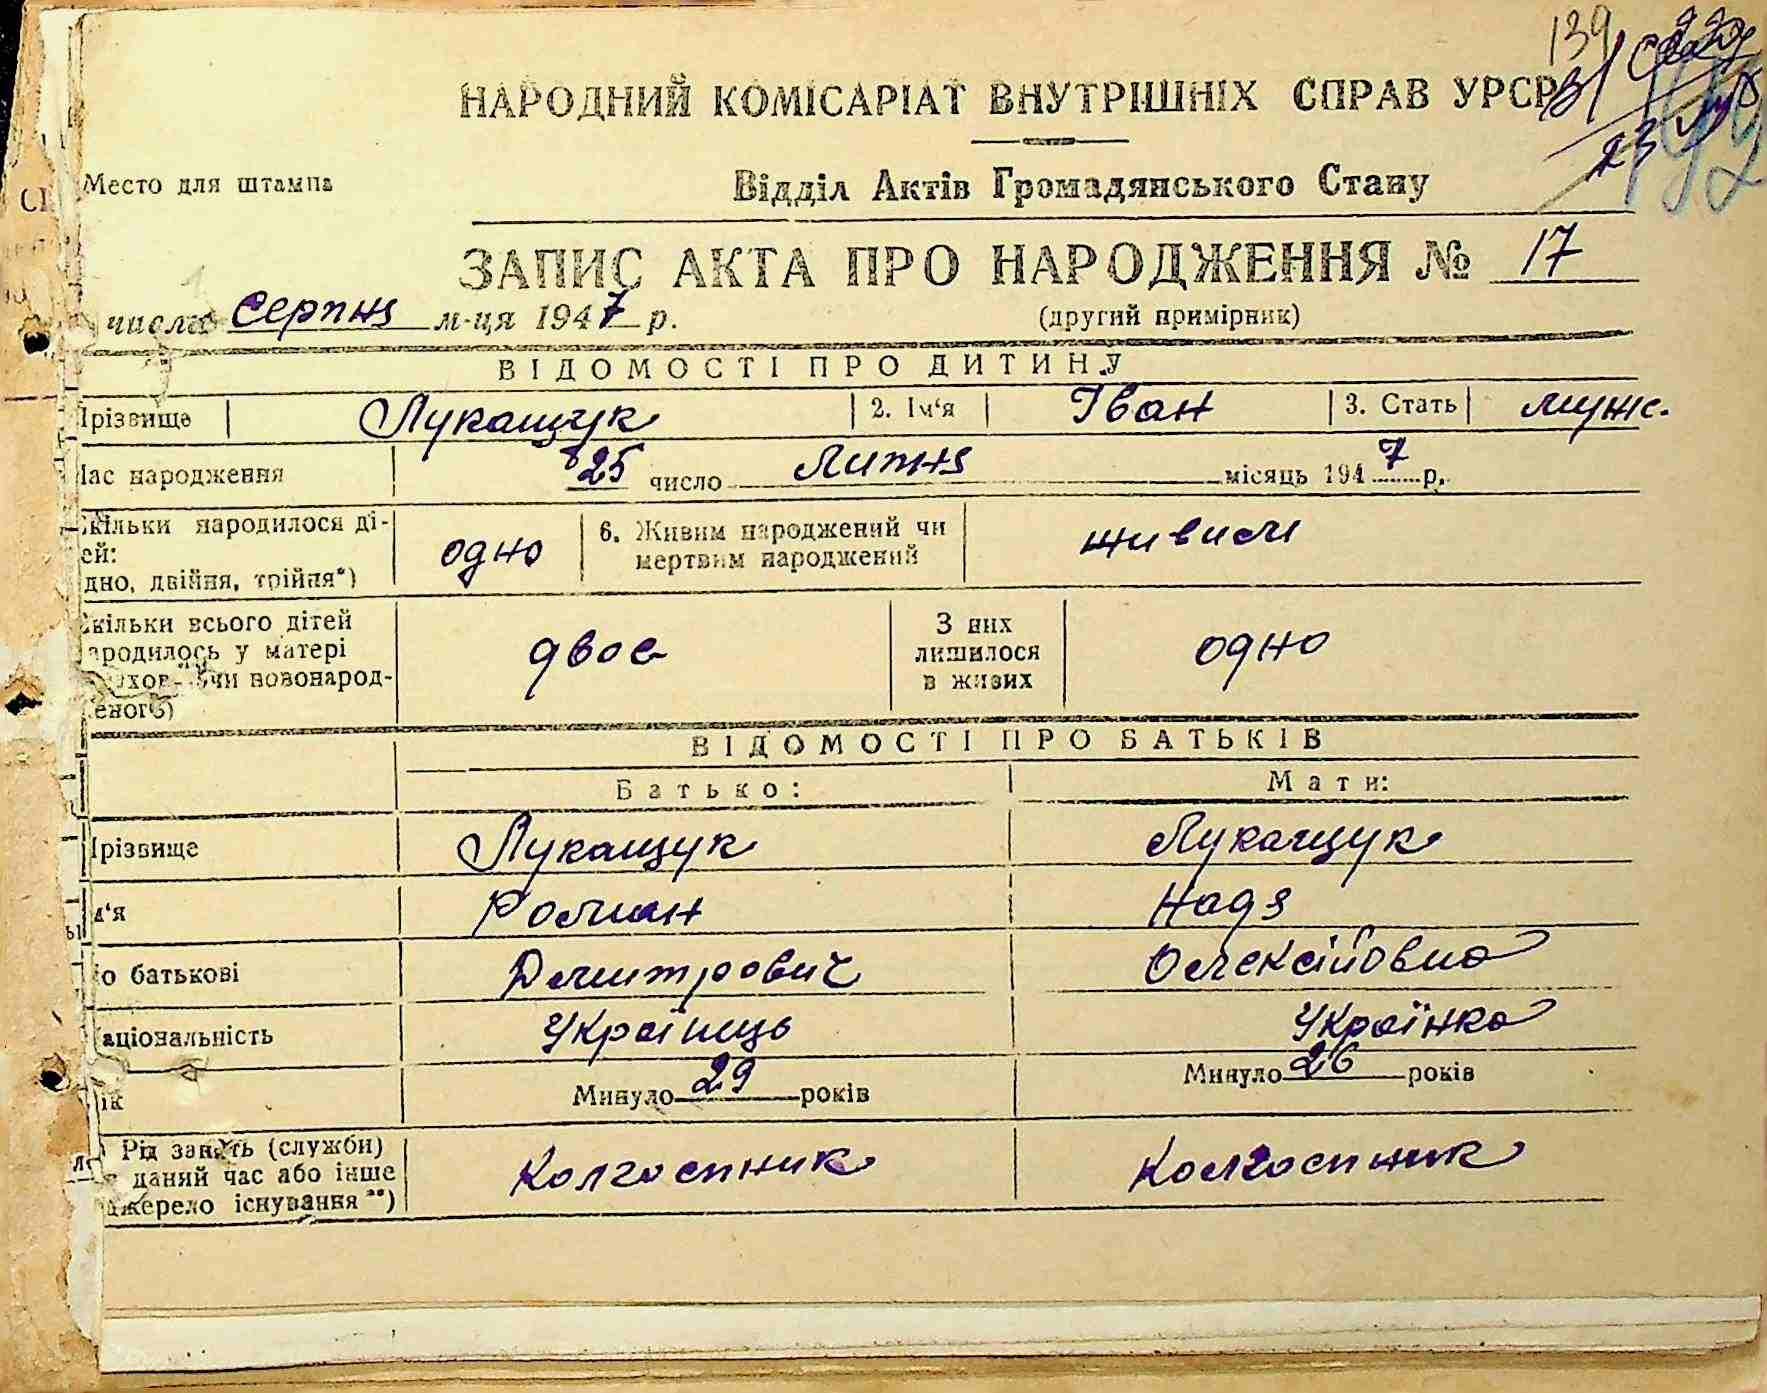 139
НАРОДНИЙ КОМІСАРІАТ ВНУТРІШНІХ СПРАВ УРСР
23
Место для штампа
Відділ Актів Громадянського Стану
ЗАПИС АКТА ПРО НАРОДЖЕННЯ № 17
числа Серпня м-ця 1947 р.
(другий примірник)
ВІДОМОСТІ ПРО ДИТИНУ
різвище Лукащук 2. Ім‘я Іван 3. Стать муж.
ас народження 25 число Липня місяць 1947 р.
кільки народилося ді-
ей:
дно, двійня, трійня*)
одно
6. Живим народжений чи
мертвим народжений
живим
кільки всього дітей
ародилось у матері
чи новонарод-
еного)
двое
З них
лишилося
в живих
одно
ВІДОМОСТІ ПРО БАТЬКІВ
Батько: Мати:
різвище Лукащук Лукащук
м‘я Роман Надя
о батькові Дмитрович Олексіївна
аціональність Українець Українка
ік Минуло 29 років Минуло 26 років
Рід занять (служби)
даний час або інше
жерело існування **)
Колгоспник Колгоспник